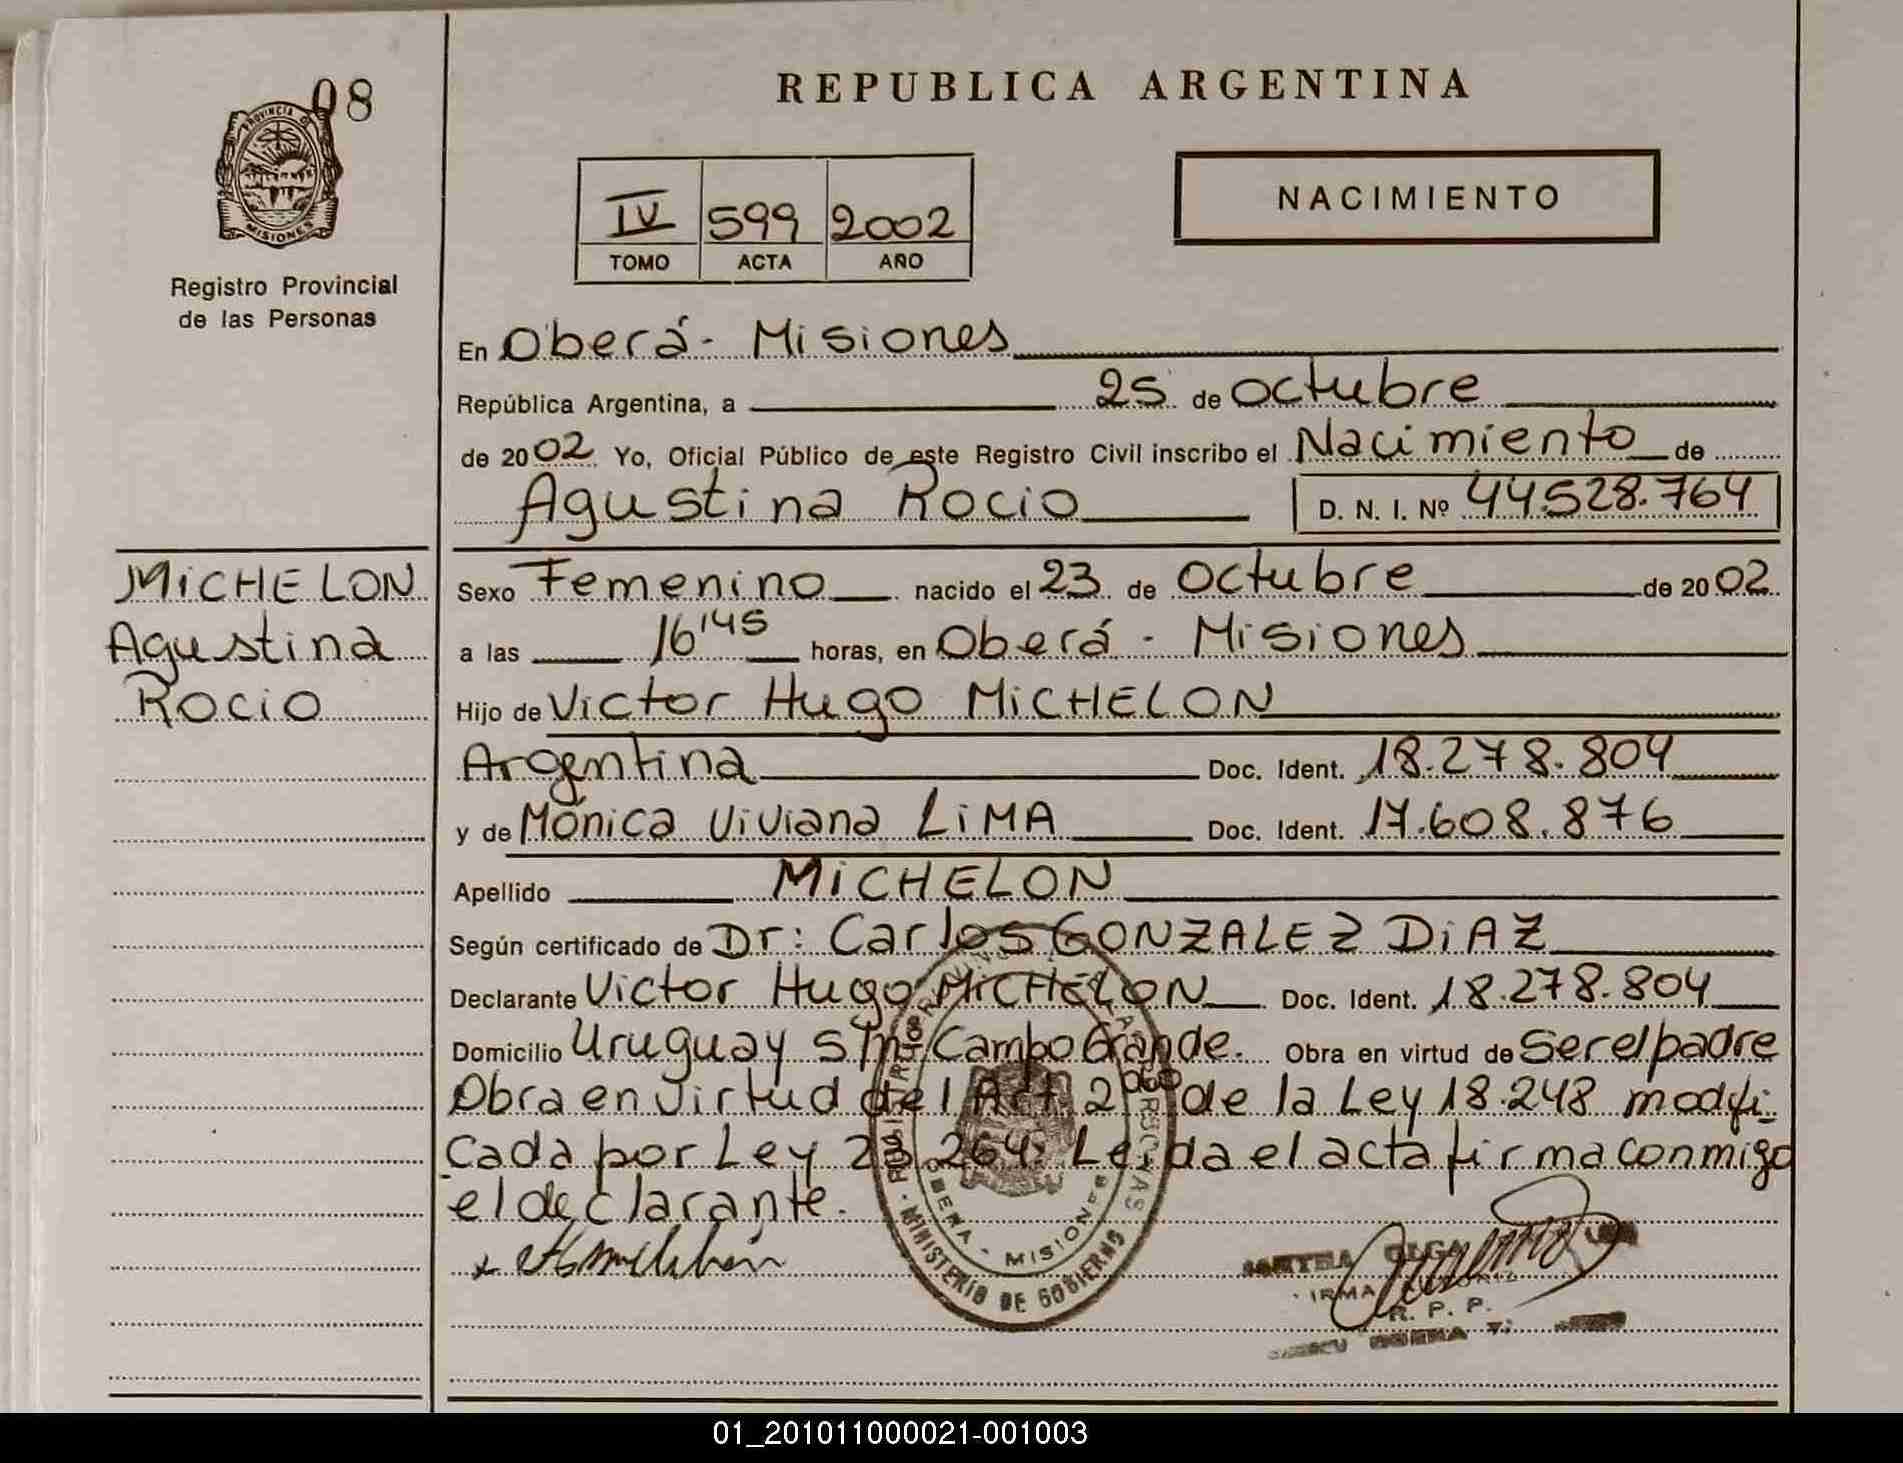 08
PROVINCIA DE
MISIONES
Registro Provincial
de las Personas
REPUBLICA ARGENTINA
IV 599 2002
TOMO ACTA AÑO
NACIMIENTO
En Oberá - Misiones
República Argentina, a 25 de octubre
de 2002 Yo, Oficial Público de este Registro Civil inscribo el Nacimiento de
Agustina Rocio D. N. I. Nº 44.528.764
MiCHELON
Agustina
Rocio
Sexo Femenino nacido el 23 de octubre de 2002
a las 16'45 horas, en Oberá - Misiones
Hijo de Victor Hugo MiCHELON
Argentina Doc. Ident. 18.278.804
y de Mónica Viviana LiMA Doc. Ident. 17.608.876
Apellido MiCHELON
Según certificado de Dr: Carlos GONZALEZ DiAZ
Declarante Victor Hugo MiCHELON Doc. Ident. 18.278.804
Domicilio Uruguay s/nº Campo Grande. Obra en virtud de Ser el padre
Obra en virtud del Art. 2º de la Ley 18.248 modifi
cada por Ley 23.264. Leida el acta firma conmigo
el declarante.
OBERA - MISIONES
MINISTERIO DE GOBIERNO
OLGA
IRMA
R. P. P.
01_201011000021-001003